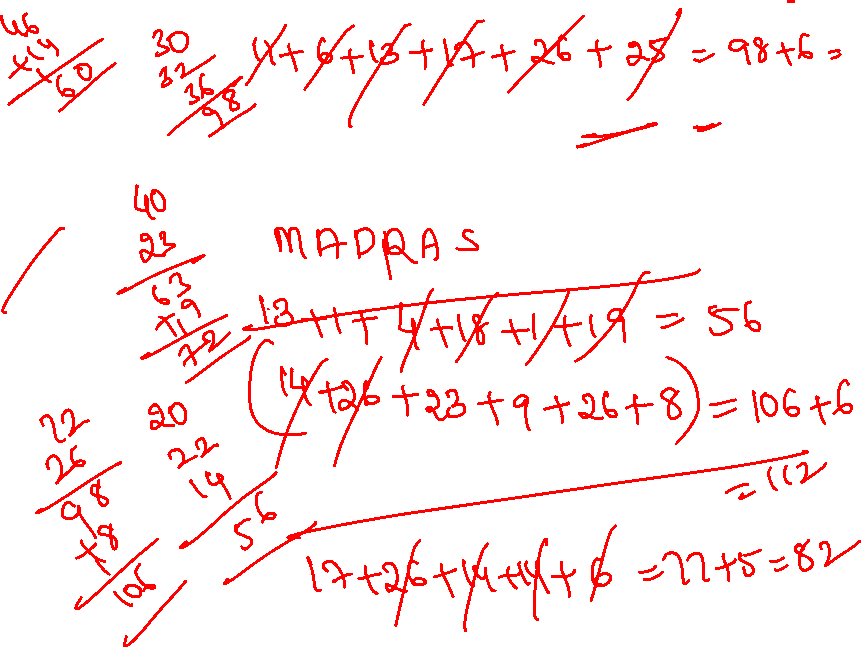 46
+14
60
30
32
36
98
11 + 6 + 13 + 17 + 26 + 25 = 98 + 6 =
40
23
63
+19
72
MADRAS
13 + 1 + 4 + 18 + 1 + 19 = 56
(14 + 26 + 23 + 9 + 26 + 8) = 106 + 6
= 112
72
26
98
+8
106
20
22
14
56
17 + 26 + 14 + 14 + 6 = 77 + 5 = 82